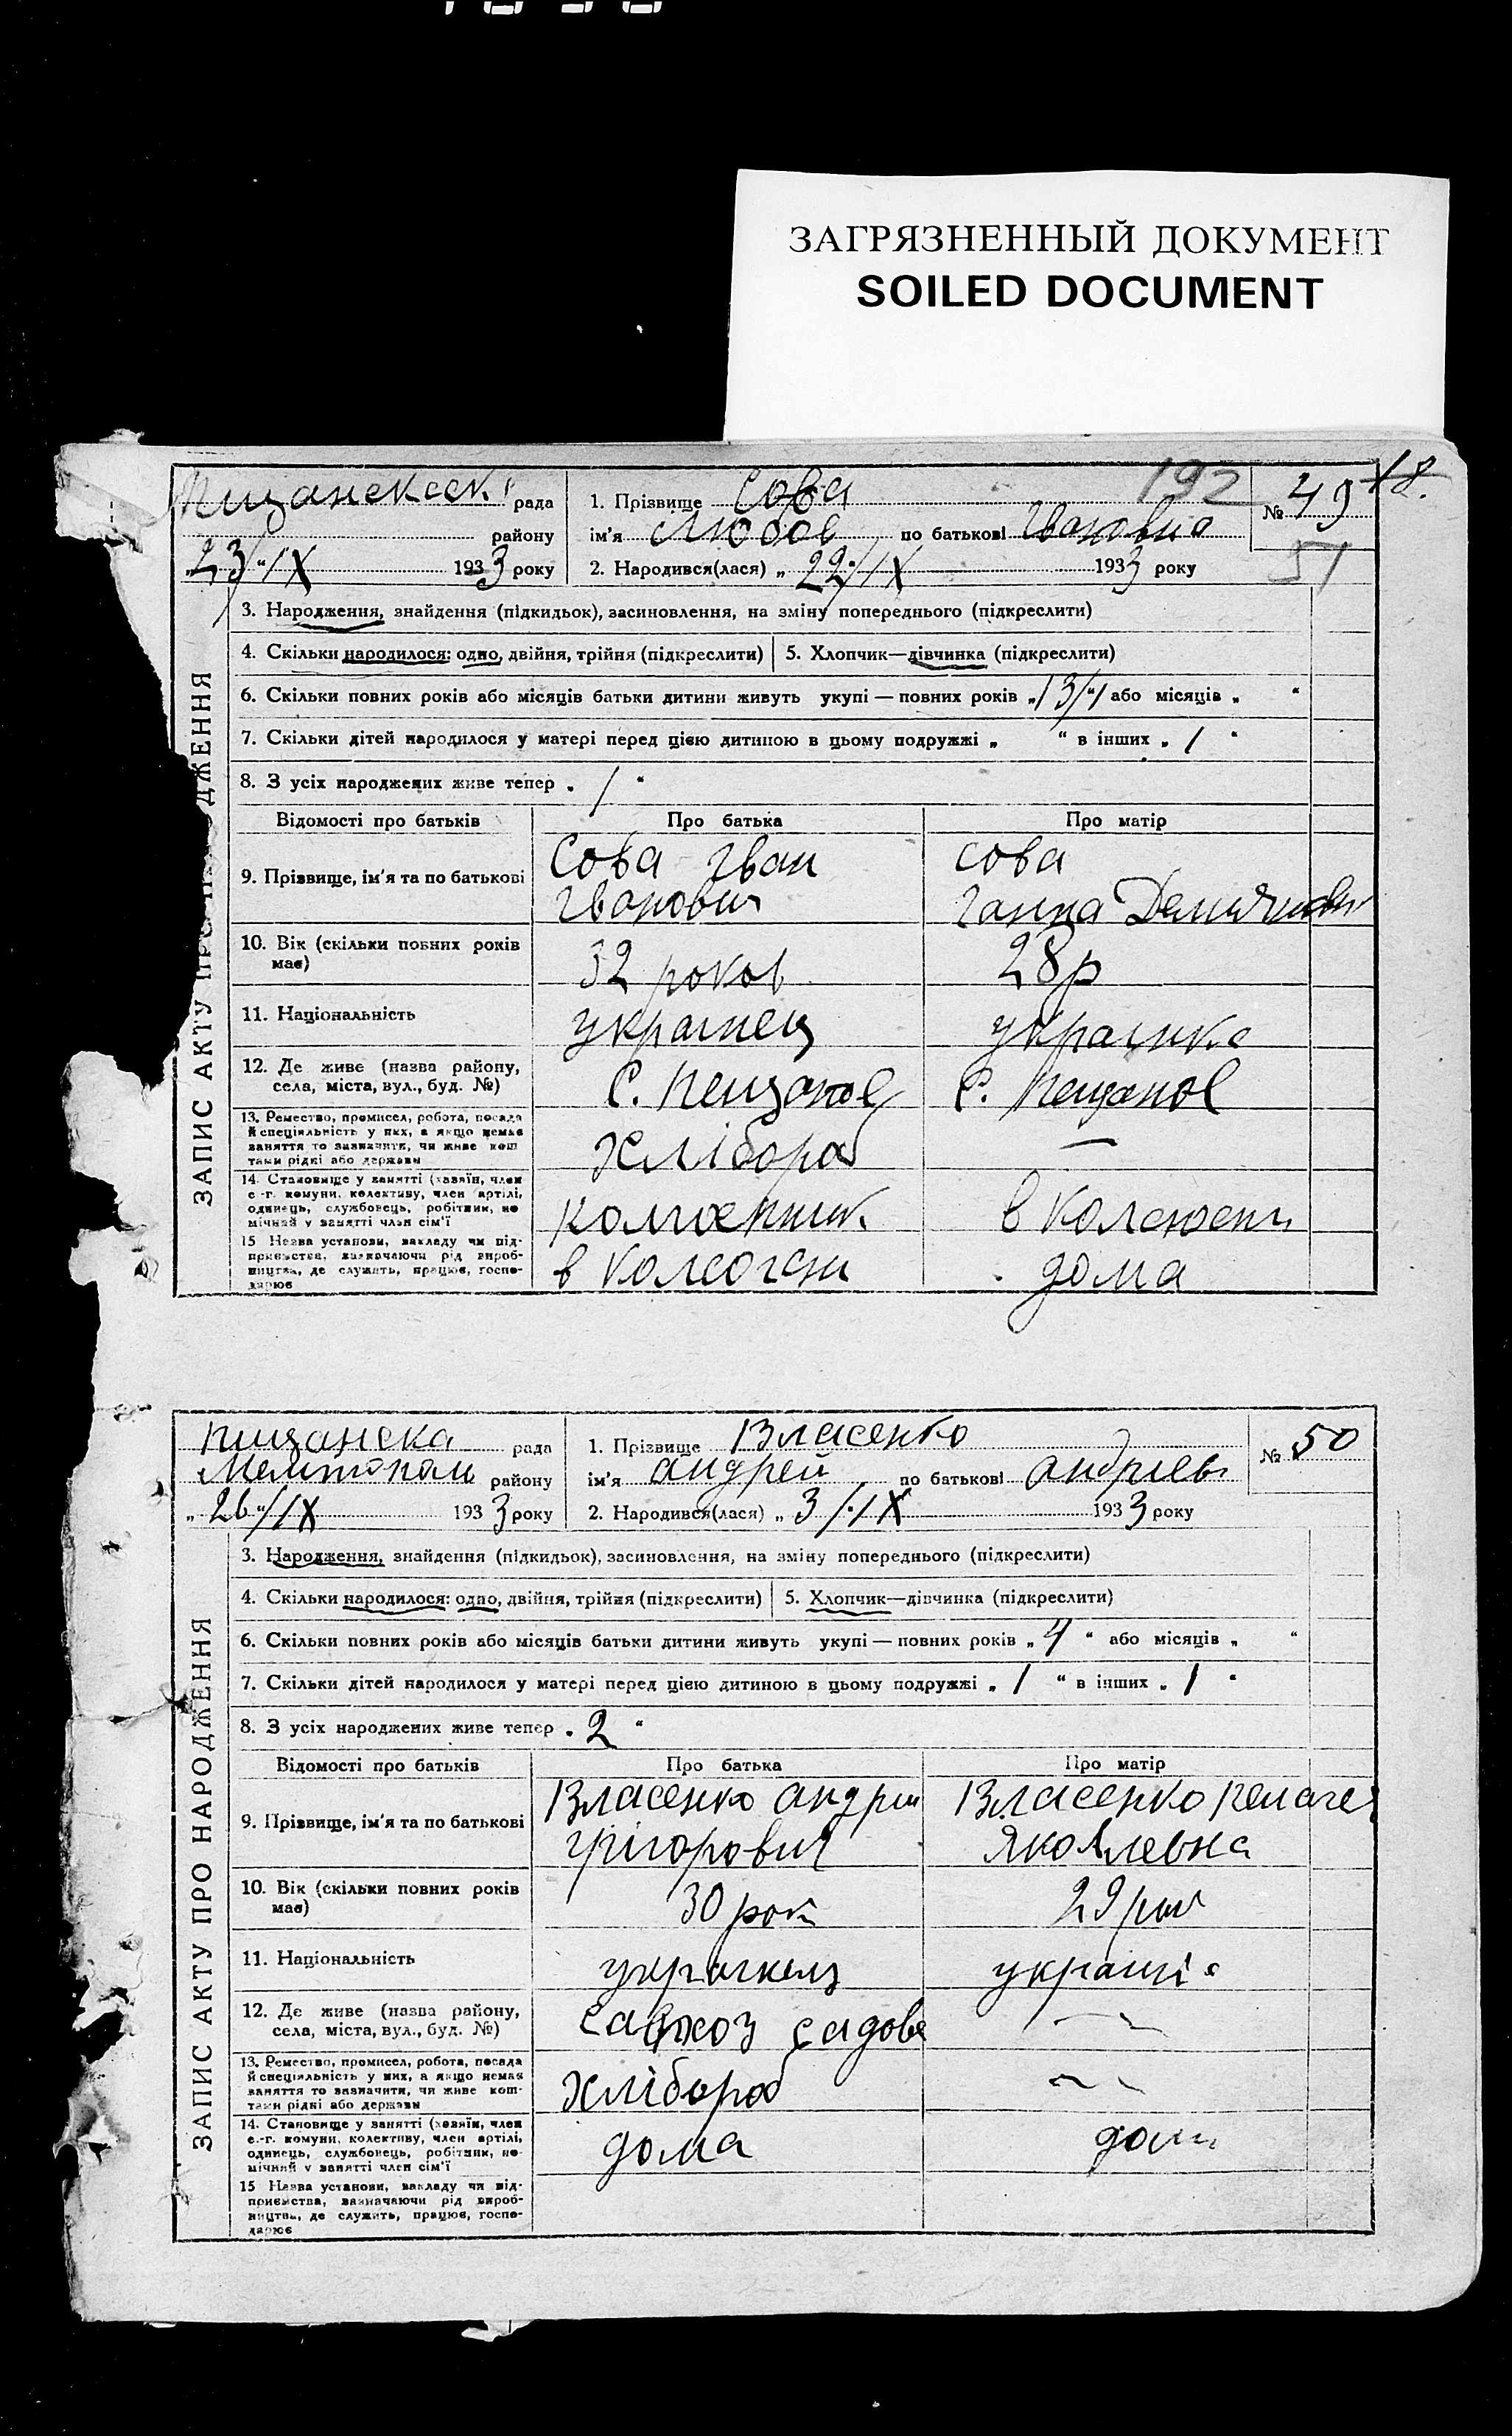 ЗАГРЯЗНЕННЫЙ ДОКУМЕНТ
SOILED DOCUMENT
192
18.
рада
району
23/IX 1933 року
1. Прізвище Сова
ім'я Любов по батькові Івановна
2. Народився(лася) „ 22/IX 1933 року
№ 49
51
ЗАПИС АКТУ ПРО НАРОДЖЕННЯ
3. Народження, знайдення (підкидьок), засиновлення, на зміну попереднього (підкреслити)
4. Скільки народилося: одно, двійня, трійня (підкреслити) 5. Хлопчик—дівчинка (підкреслити)
6. Скільки повних років або місяців батьки дитини живуть укупі — повних років „ або місяців „ “
7. Скільки дітей народилося у матері перед цією дитиною в цьому подружжі „ “ в інших „ 1 “
8. З усіх народжених живе тепер „ 1 “
Відомості про батьків Про батька Про матір
9. Прізвище, ім'я та по батькові
Сова Іван
Іванович
сова
Ганна
10. Вік (скільки повних років має)
32 роков
28 р
11. Національність
украінец
украинка
12. Де живе (назва району,
села, міста, вул., буд. №)
С. Пещаное
С. Пещаное
13. Ремество, промисел, робота, посада
й спеціяльність у них, а якщо немає
заняття то зазначити, чи живе кош
тами рідні або держави
Хлібороб
—
14. Становище у занятті (хазяїн, член
с.-г. комуни, колективу, член артілі,
одинець, службовець, робітник, по
мічний у занятті член сім'ї
в
15 Назва установи, закладу чи під-
приємства, зазначаючи рід вироб-
ництва, де служить, працює, госпо-
дарює
в
дома
Пищанска рада
району
„ 26/IX 1933 року
1. Прізвище Власенко
ім'я Андрей по батькові
2. Народився(лася) „ 3/IX 1933 року
№ 50
ЗАПИС АКТУ ПРО НАРОДЖЕННЯ
3. Народження, знайдення (підкидьок), засиновлення, на зміну попереднього (підкреслити)
4. Скільки народилося: одно, двійня, трійня (підкреслити) 5. Хлопчик—дівчинка (підкреслити)
6. Скільки повних років або місяців батьки дитини живуть укупі — повних років „ 4 “ або місяців „ “
7. Скільки дітей народилося у матері перед цією дитиною в цьому подружжі „ 1 “ в інших „ 1 “
8. З усіх народжених живе тепер „ 2 “
Відомості про батьків Про батька Про матір
9. Прізвище, ім'я та по батькові
Власенко Андрій
Грігорович
Власенко
Яковлевна
10. Вік (скільки повних років має)
30 рок
29
11. Національність
12. Де живе (назва району,
села, міста, вул., буд. №)
13. Ремество, промисел, робота, посада
й спеціяльність у них, а якщо немає
заняття то зазначити, чи живе кош-
тами рідні або держави
Хлібороб
14. Становище у занятті (хазяїн, член
с.-г. комуни, колективу, член артілі,
одинець, службовець, робітник, по-
мічний у занятті член сім'ї
дома
15 Назва установи, закладу чи під-
приємства, зазначаючи рід вироб-
ництва, де служить, працює, госпо-
дарює